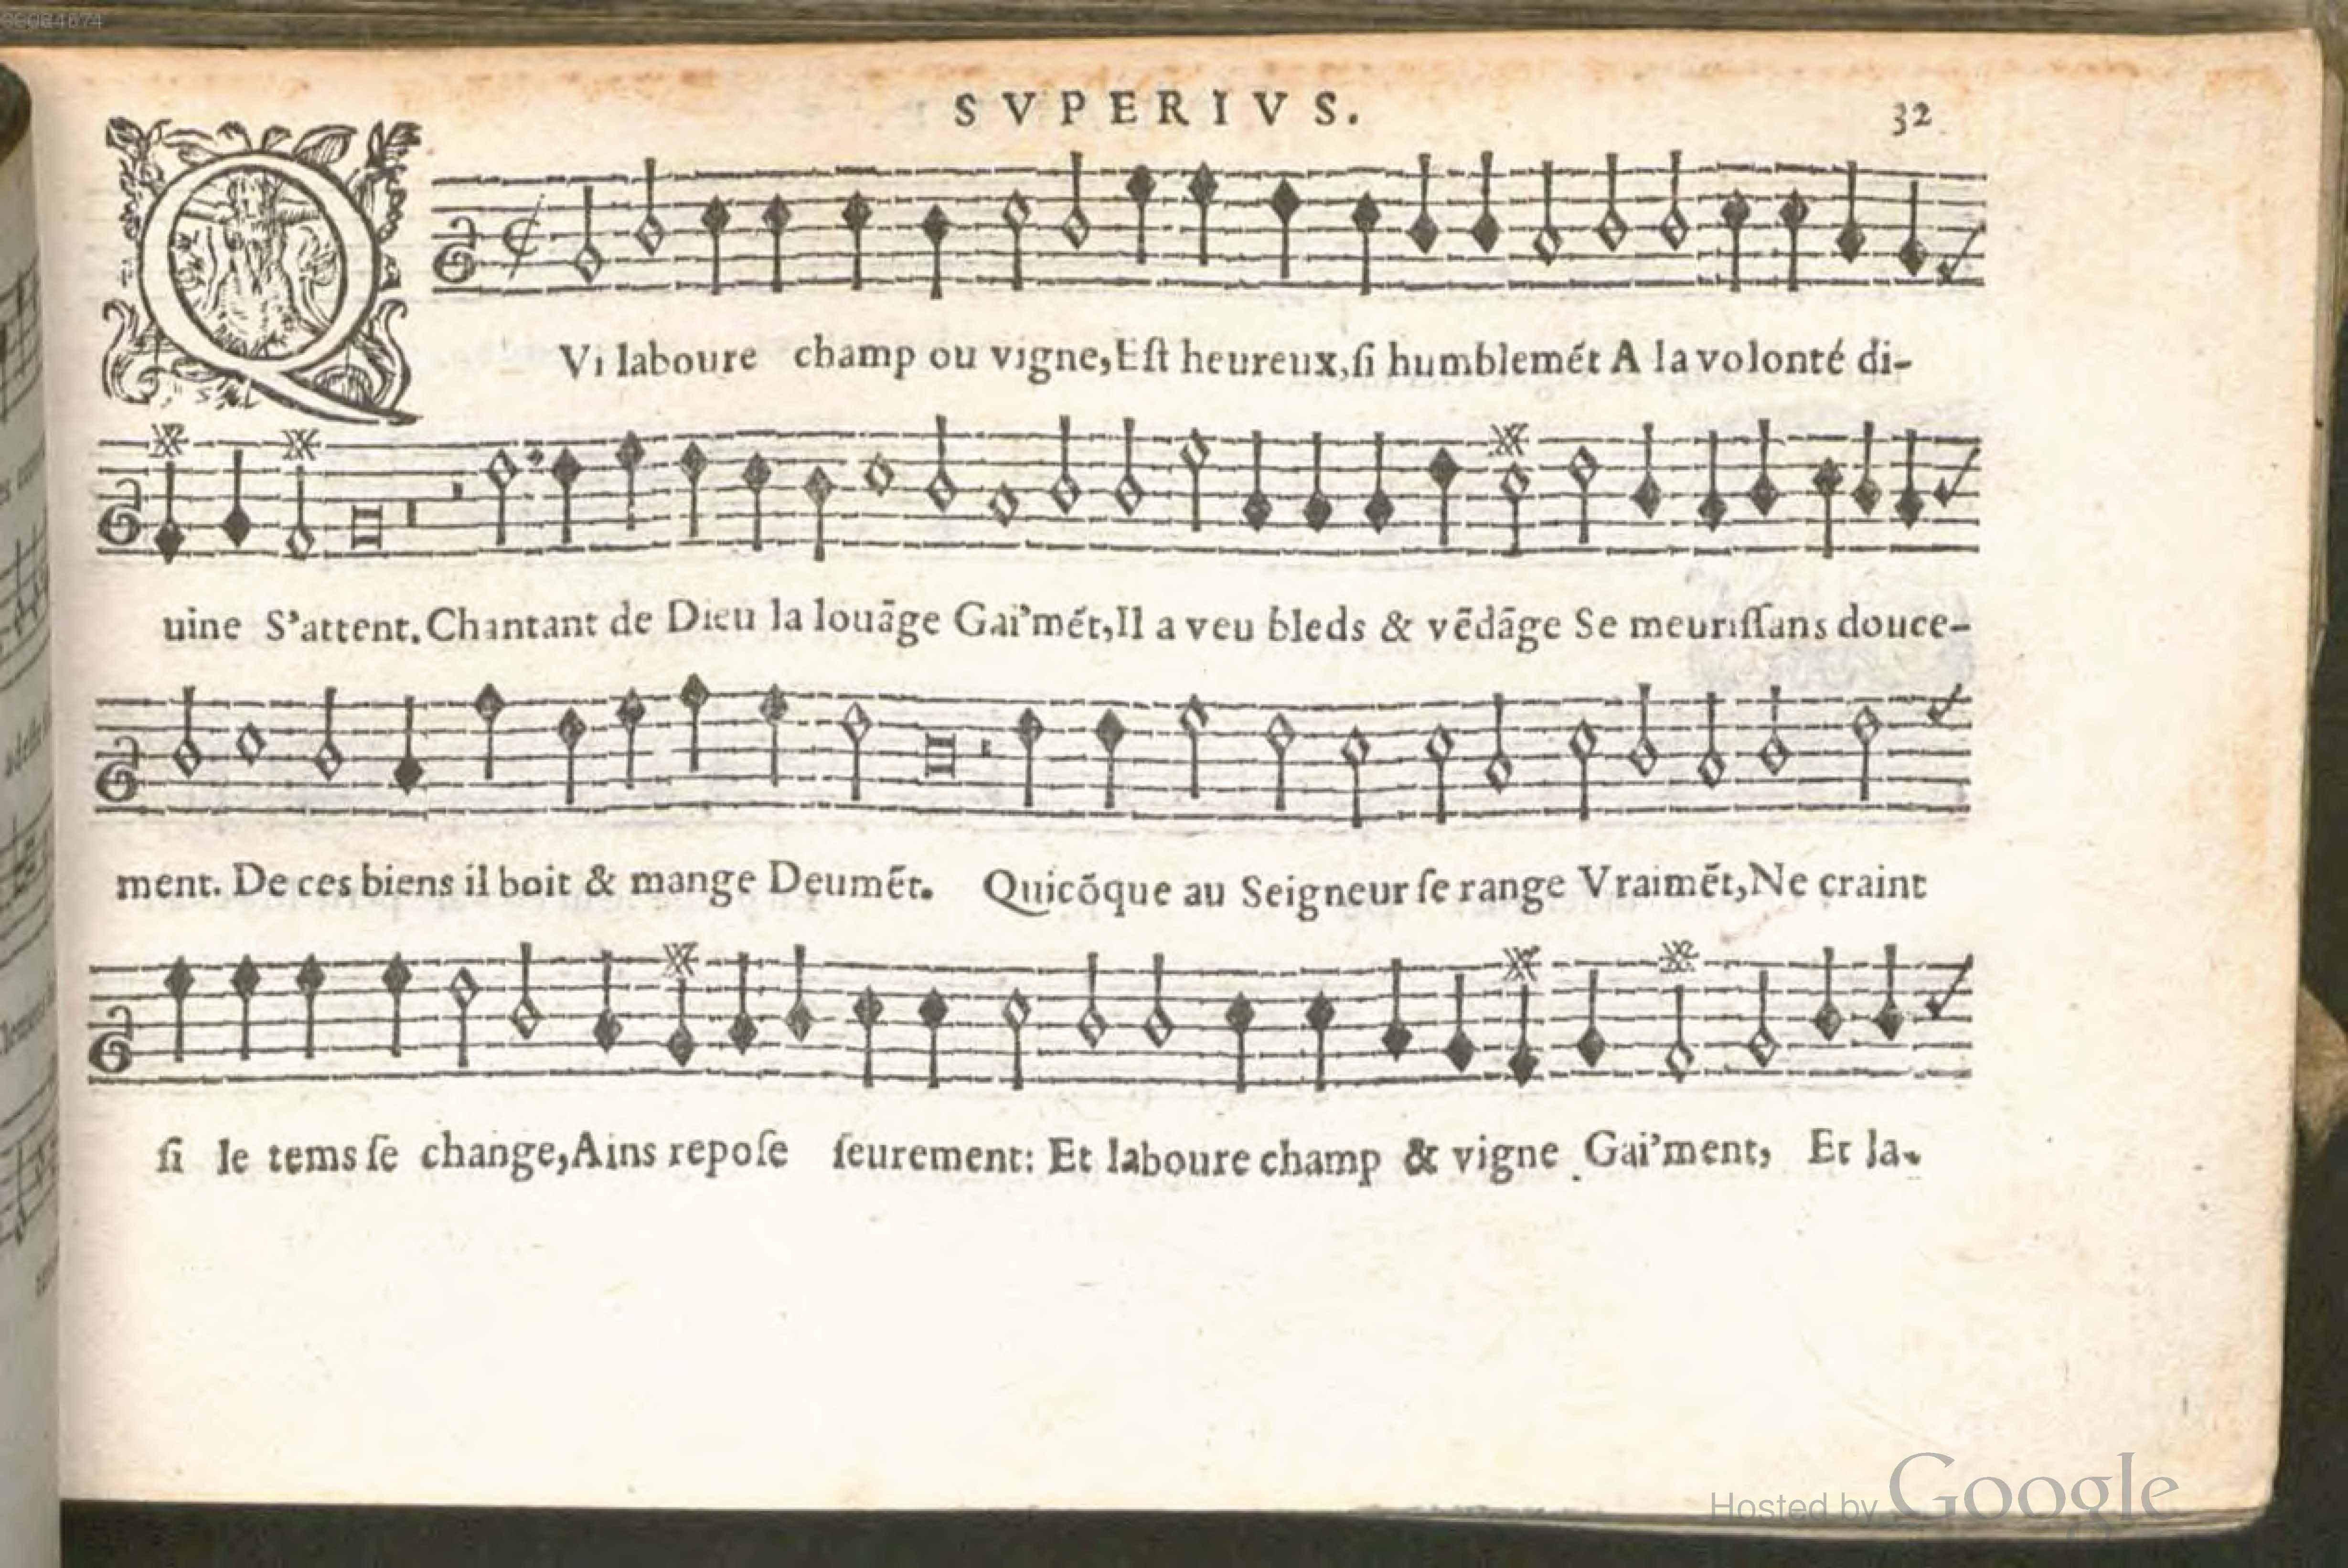 SVPERIVS.
32
QVi laboure champ ou vigne,Eſt heureux,ſi humblemét A la volonté di-
uine S'attent. Chantant de Dieu la louāge Gai'mét,Il a veu bleds & vēdāge Se meuriſſans douce-
ment. De ces biens il boit & mange Deumēt. Quicōque au Seigneur ſe range Vraimēt,Ne craint
ſi le tems ſe change,Ains repoſe ſeurement: Et laboure champ & vigne Gai'ment, Et la-
Hosted by Google